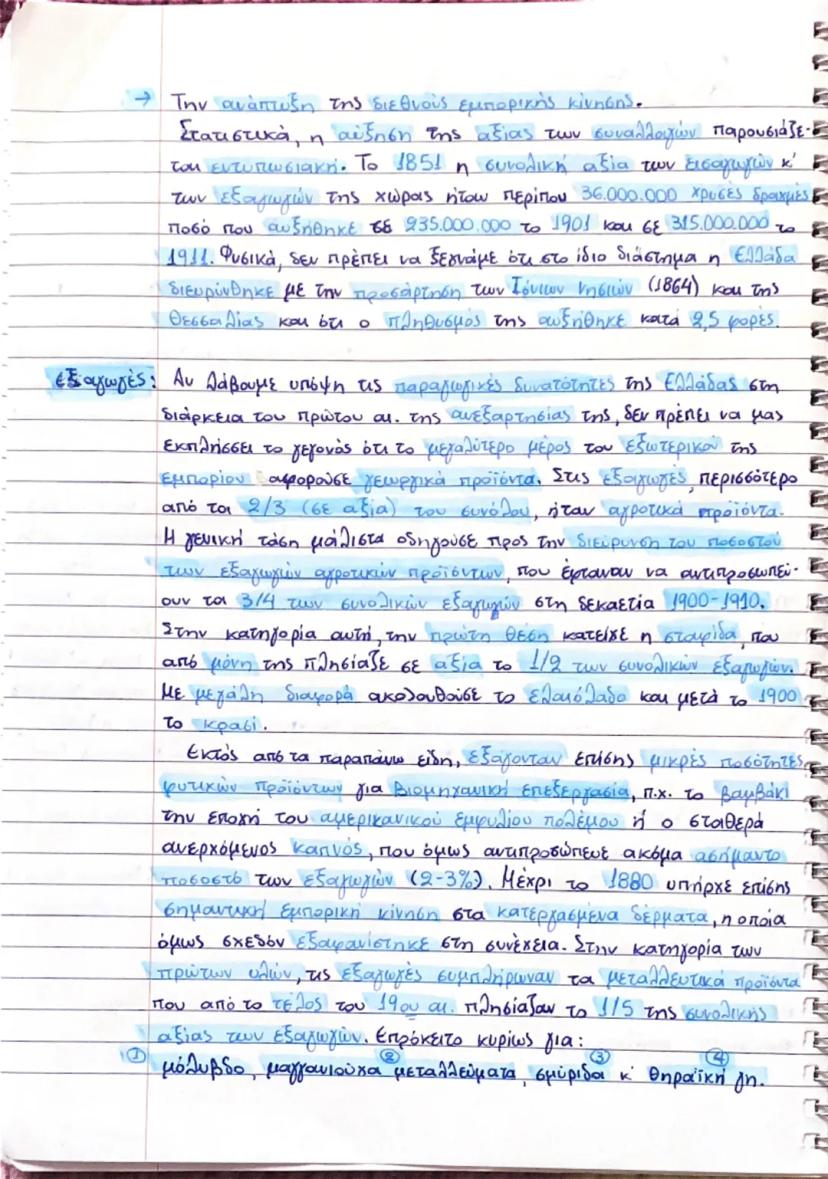 → Την ανάπτυξη της διεθνούς εμπορικής κίνησης.
Στατιστικά, η αύξηση της αξίας των συναλλαγών παρουσιάζε-
ται εντυπωσιακή. Το 1851 η συνολική αξία των εισαγωγών κ'
των εξαγωγών της χώρας ήταν περίπου 36.000.000 χρυσές δραχμές
ποσό που αυξήθηκε σε 235.000.000 το 1901 και σε 315.000.000 το
1911. Φυσικά, δεν πρέπει να ξεχνάμε ότι στο ίδιο διάστημα η Ελλάδα
διευρύνθηκε με την προσάρτηση των Ιόνιων νησιών (1864) και της
Θεσσαλίας και ότι ο πληθυσμός της αυξήθηκε κατά 2,5 φορές.
εξαγωγές: Αν λάβουμε υπόψη τις παραγωγικές δυνατότητες της Ελλάδας στη
διάρκεια του πρώτου αι. της ανεξαρτησίας της, δεν πρέπει να μας
εκπλήσσει το γεγονός ότι το μεγαλύτερο μέρος του εξωτερικού της
εμπορίου αφορούσε γεωργικά προϊόντα. Στις εξαγωγές, περισσότερο
από τα 2/3 (σε αξία) του συνόλου, ήταν αγροτικά προϊόντα.
Η γενική τάση μάλιστα οδηγούσε προς την διεύρυνση του ποσοστού
των εξαγωγών αγροτικών προϊόντων, που έφταναν να αντιπροσωπεύ-
ουν τα 3/4 των συνολικών εξαγωγών στη δεκαετία 1900-1910.
Στην κατηγορία αυτή, την πρώτη θέση κατείχε η σταφίδα, που
από μόνη της πλησίαζε σε αξία το 1/2 των συνολικών εξαγωγών.
Με μεγάλη διαφορά ακολουθούσε το ελαιόλαδο και μετά το 1900
το κρασί.
Εκτός από τα παραπάνω είδη, εξάγονταν επίσης μικρές ποσότητες
φυτικών προϊόντων για βιομηχανική επεξεργασία, π.χ. το βαμβάκι
την εποχή του αμερικανικού εμφυλίου πολέμου ή ο σταθερά
ανερχόμενος καπνός, που όμως αντιπροσώπευε ακόμα ασήμαντο
ποσοστό των εξαγωγών (2-3%). Μέχρι το 1880 υπήρχε επίσης
σημαντική εμπορική κίνηση στα κατεργασμένα δέρματα, η οποία
όμως σχεδόν εξαφανίστηκε στη συνέχεια. Στην κατηγορία των
πρώτων υλών, τις εξαγωγές συμπλήρωναν τα μεταλλευτικά προϊόντα
που από το τέλος του 19ου αι. πλησίαζαν το 1/5 της συνολικής
αξίας των εξαγωγών. Επρόκειτο κυρίως για:
① ② ③ ④
μόλυβδο, μαγγανιούχα μεταλλεύματα, σμύριδα κ' θηραϊκή γη.